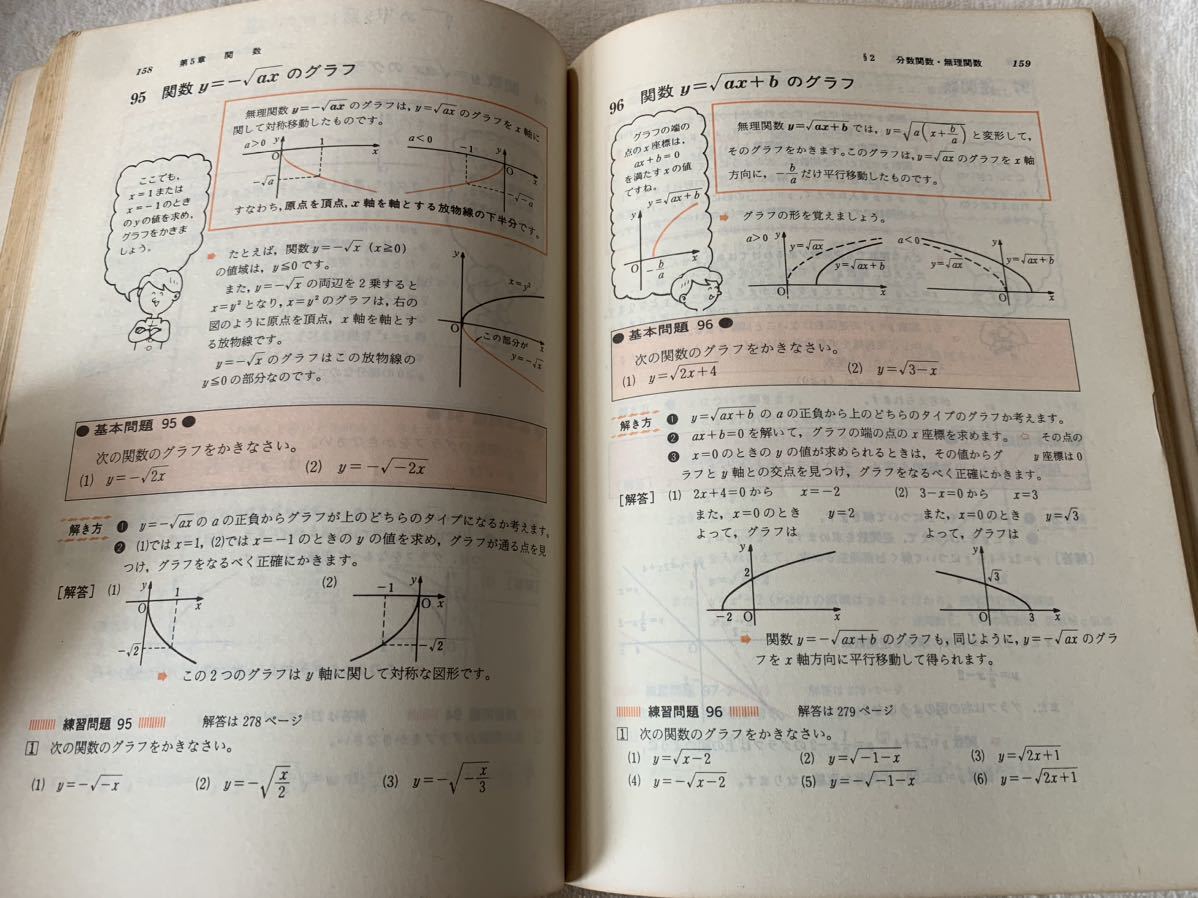 158 第5章 関 数
95 関数 y=−√ax のグラフ
無理関数 y=−√ax のグラフは, y=√ax のグラフを x 軸に
関して対称移動したものです。
a>0 y 1 x O −√a
a<0 y −1 O x −√−a
すなわち, 原点を頂点, x 軸を軸とする放物線の下半分です。
ここでも,
x=1 または
x=−1 のとき
の y の値を求め,
グラフをかきま
しょう。
たとえば, 関数 y=−√x (x≧0)
の値域は, y≦0 です。
また, y=−√x の両辺を2乗すると
x=y² となり, x=y² のグラフは, 右の
図のように原点を頂点, x 軸を軸とす
る放物線です。
y=−√x のグラフはこの放物線の
y≦0 の部分なのです。
y x=y² O x この部分が y=−√x
● 基本問題 95 ●
次の関数のグラフをかきなさい。
(1) y=−√2x (2) y=−√−2x
解き方 ❶ y=−√ax の a の正負からグラフが上のどちらのタイプになるか考えます。
❷ (1)では x=1, (2)では x=−1 のときの y の値を求め, グラフが通る点を見
つけ, グラフをなるべく正確にかきます。
[解答] (1) y 1 O x −√2
(2) y −1 O x −√2
この2つのグラフは y 軸に関して対称な図形です。
練習問題 95 解答は 278 ページ
1 次の関数のグラフをかきなさい。
(1) y=−√−x (2) y=−√x/2 (3) y=−√−x/3
§2 分数関数・無理関数 159
96 関数 y=√ax+b のグラフ
グラフの端の
点の x 座標は,
ax+b=0
を満たす x の値
ですね。
y y=√ax+b O −b/a x
無理関数 y=√ax+b では, y=√a(x+b/a) と変形して,
そのグラフをかきます。このグラフは, y=√ax のグラフを x 軸
方向に, −b/a だけ平行移動したものです。
グラフの形を覚えましょう。
a>0 y y=√ax y=√ax+b O x
a<0 y y=√ax y=√ax+b O x
● 基本問題 96 ●
次の関数のグラフをかきなさい。
(1) y=√2x+4 (2) y=√3−x
解き方 ❶ y=√ax+b の a の正負から上のどちらのタイプのグラフか考えます。
❷ ax+b=0 を解いて, グラフの端の点の x 座標を求めます。 ⇦ その点の
❸ x=0 のときの y の値が求められるときは, その値からグ y 座標は0
ラフと y 軸との交点を見つけ, グラフをなるべく正確にかきます。
[解答] (1) 2x+4=0 から x=−2 (2) 3−x=0 から x=3
また, x=0 のとき y=2 また, x=0 のとき y=√3
よって, グラフは よって, グラフは
y 2 −2 O x
y √3 O 3 x
関数 y=−√ax+b のグラフも, 同じように, y=−√ax のグラ
フを x 軸方向に平行移動して得られます。
練習問題 96 解答は 279 ページ
1 次の関数のグラフをかきなさい。
(1) y=√x−2 (2) y=√−1−x (3) y=√2x+1
(4) y=−√x−2 (5) y=−√−1−x (6) y=−√2x+1